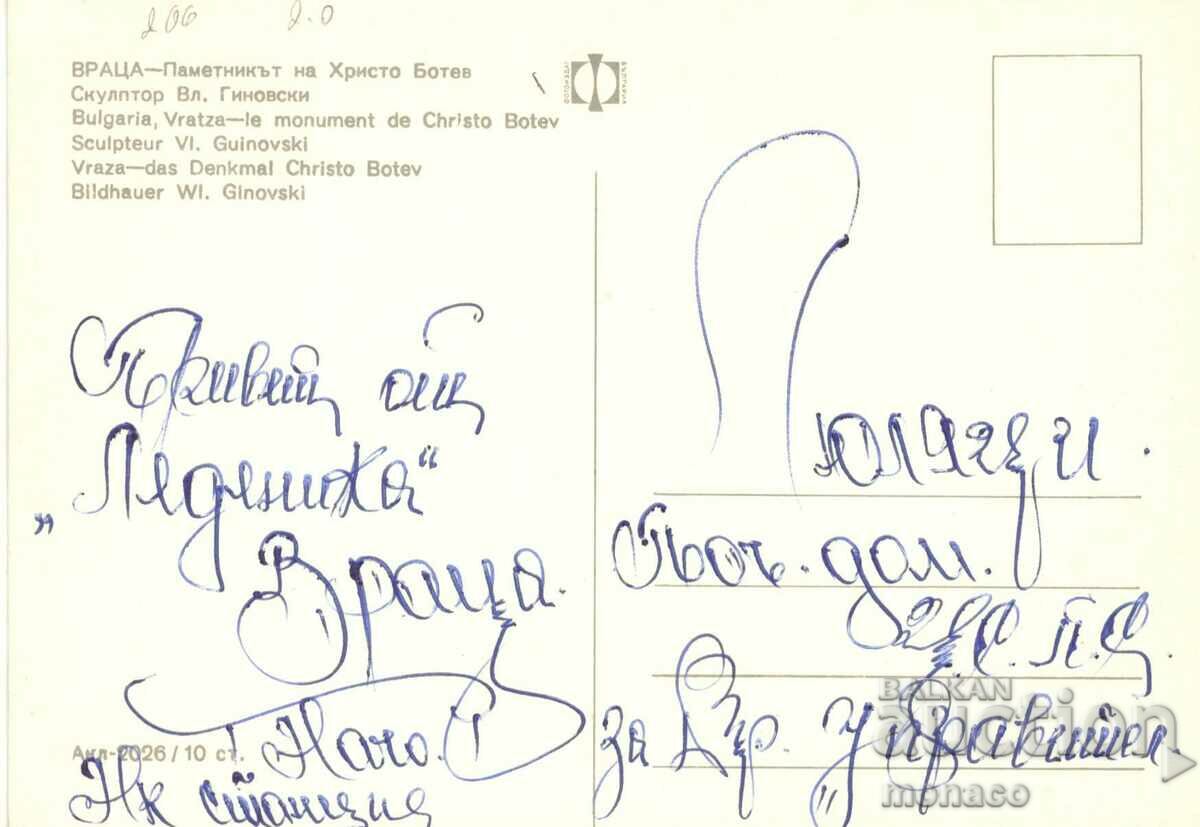 206 2.0
ВРАЦА—Паметникът на Христо Ботев
Скулптор Вл. Гиновски
Bulgaria, Vratza—le monument de Christo Botev
Sculpteur Vl. Guinovski
Vraza—das Denkmal Christo Botev
Bildhauer Wl. Ginovski
ФОТОИЗДАТ БЪЛГАРИЯ
Привет от
„Леденика“
Враца.
Начо.
Акл-2026/10 ст.
станция
Поч. дом.
за
Управител.
BALKAN
auction
monaco